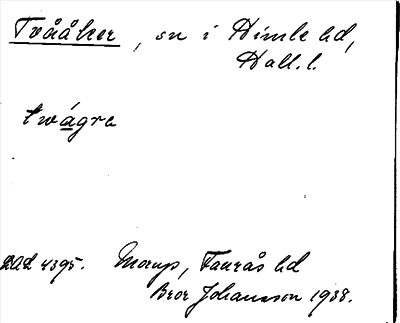 Tvååker, sn i Himle hd,
Hall. l.
twágra
DAL 4395. Morup, Faurås hd
Bror Johansson 1938.